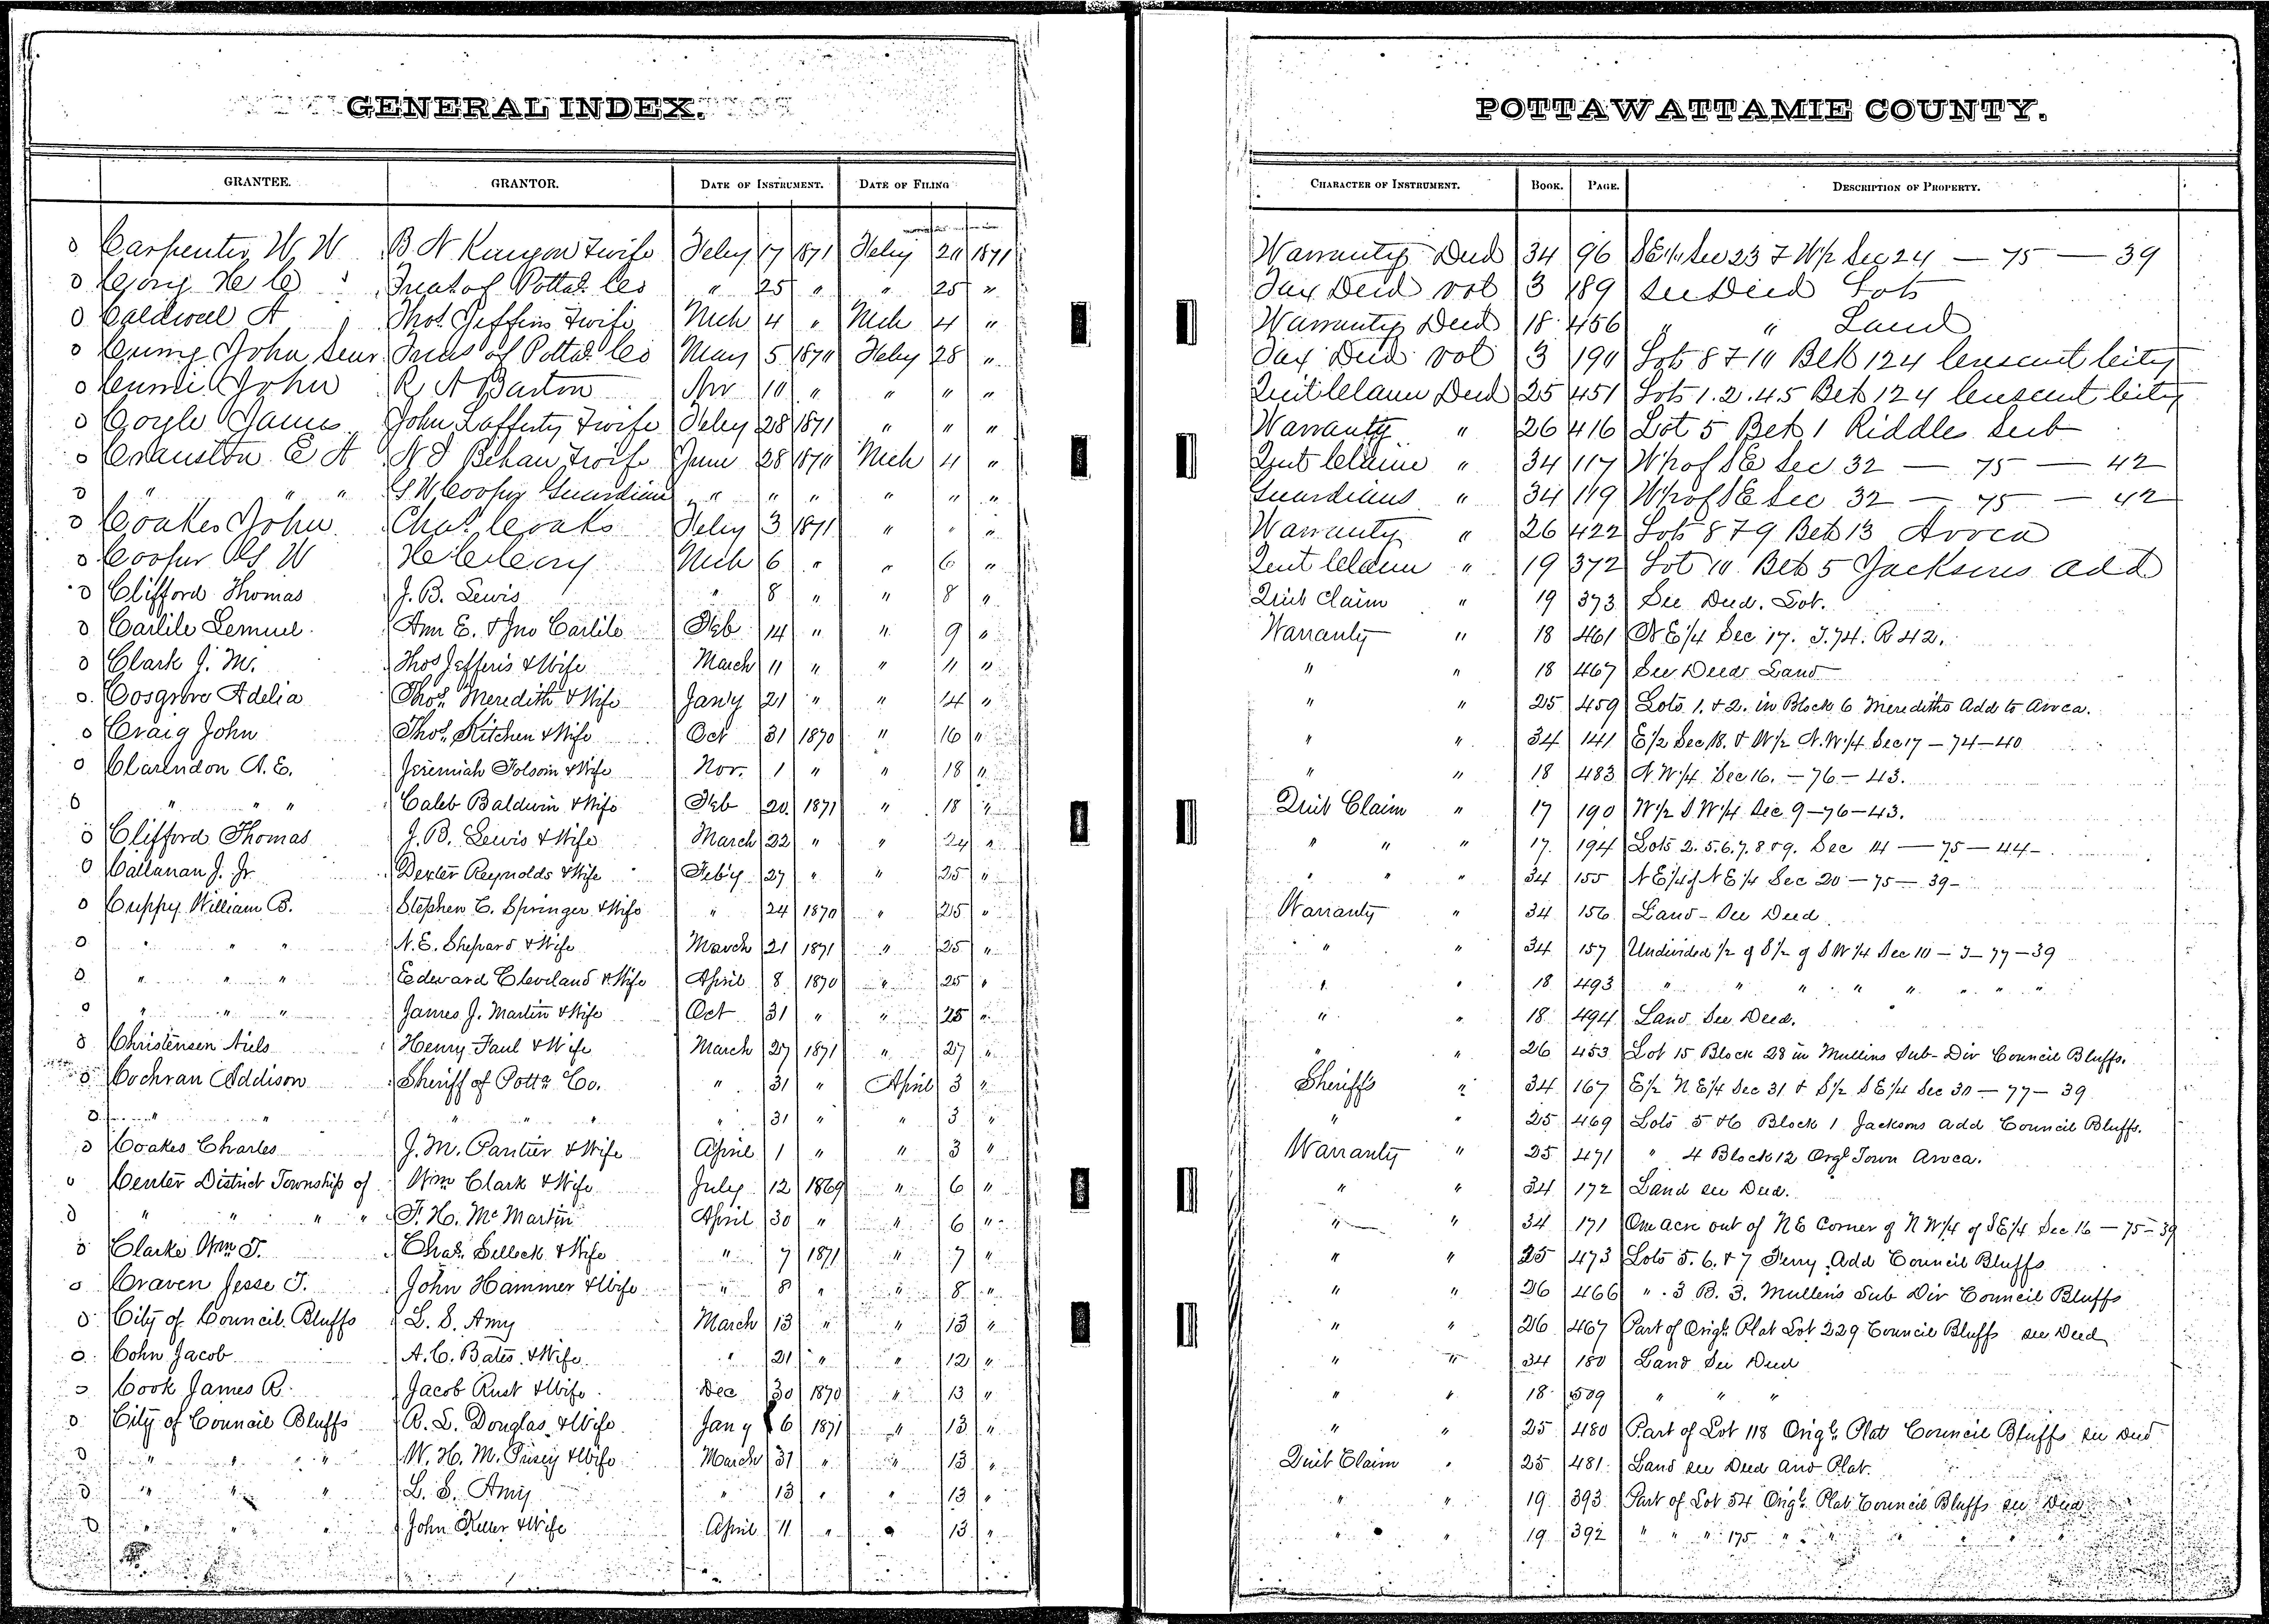 GENERAL INDEX.
GRANTEE. GRANTOR. DATE OF INSTRUMENT. DATE OF FILING
Carpenter W W B N Kinyon & wife Feby 17 1871 Feby 21 1871
Treas of Potta. Co " 25 " " 25 "
Caldwell A Thos Jeffris & wife Mch 4 " Mch 4 "
John Senr Treas of Potta. Co May 5 1870 Feby 28 "
John R A Barton Nov 10 " " " "
Coyle James John Lafferty & wife Feby 28 1871 " " "
Cranston E A N S Behan & wife June 28 1870 Mch 4 "
" " " G W Cooper Guardian " " " " " "
Coakes John Chas Coaks Feby 3 1871 " " "
Cooper G W Mch 6 " " 6 "
Clifford Thomas J. B. Lewis " 8 " " 8 "
Carlile Lemuel Ann E. & Jno Carlile Feb 14 " " 9 "
Clark J. M. Thos Jefferis & Wife March 11 " " 11 "
Cosgrove Adelia Thos. Meredith & Wife Jan'y 21 " " 14 "
Craig John Thos. Kitchen & Wife Oct 31 1870 " 16 "
Clarendon A. E. Jeremiah Folsom & Wife Nov. 1 " " 18 "
" " " Caleb Baldwin & Wife Feb 20 1871 " 18 "
Clifford Thomas J. B. Lewis & Wife March 22 " " 24 "
Callanan J. Jr Dexter Reynolds & Wife Feb'y 27 " " 25 "
Cuppy William B. Stephen C. Springer & Wife " 24 1870 " 25 "
" " " N. E. Shepard & Wife March 21 1871 " 25 "
" " " Edward Cleveland & Wife April 8 1870 " 25 "
" " " James J. Martin & Wife Oct 31 " " 25 "
Christensen Niels Henry Paul & Wife March 27 1871 " 27 "
Cochran Addison Sheriff of Potta Co. " 31 " April 3 "
" " " " " " 31 " " 3 "
Coakes Charles J. M. Pantier & Wife April 1 " " 3 "
Center District Township of Wm Clark & Wife July 12 1869 " 6 "
" " " " F. H. McMartin April 30 " " 6 "
Clarke Wm T. Chas. Selleck & Wife " 7 1871 " 7 "
Craven Jesse T. John Hammer & Wife " 8 " " 8 "
City of Council Bluffs L. S. Amy March 13 " " 13 "
Cohn Jacob A. C. Bates & Wife " 21 " " 12 "
Cook James R. Jacob Rust & Wife Dec 30 1870 " 13 "
City of Council Bluffs R. L. Douglas & Wife Jan y 6 1871 " 13 "
" " " W. H. M. Pusey & Wife March 31 " " 13 "
" " " L. S. Amy " 13 " " 13 "
" " John Keller & Wife April 11 " " 13 "
POTTAWATTAMIE COUNTY.
CHARACTER OF INSTRUMENT. BOOK. PAGE. DESCRIPTION OF PROPERTY.
Warranty Deed 34 96 SE 1/4 Sec 23 & W 1/2 Sec 24 — 75 — 39
Tax Deed vol 3 189 See Deed Lots
Warranty Deed 18 456 " " Land
Tax Deed vol 3 190 Lots 8 & 10 Blk 124 Crescent City
Quit Claim Deed 25 451 Lots 1.2.4.5 Blk 124 Crescent City
Warranty " 26 416 Lot 5 Blk 1 Riddles Sub
Quit Claim " 34 117 W 1/2 of SE Sec 32 — 75 — 42
Guardians " 34 119 W 1/2 of SE Sec 32 — 75 — 42
Warranty " 26 422 Lots 8 & 9 Blk 13 Avoca
Quit Claim " 19 372 Lot 10 Blk 5 Jacksons add
Quit Claim " 19 373 See Deed. Lot.
Warranty " 18 461 N E 1/4 Sec 17. T. 74. R 42.
" " 18 467 See Deed Land
" " 25 459 Lots 1. & 2. in Block 6 Merediths Add to Avoca.
" " 34 141 E 1/2 Sec 18. & W 1/2 N. W. 1/4 Sec 17 — 74 — 40
" " 18 483 N. W 1/4 Sec 16. — 76 — 43.
Quit Claim " 17 190 W 1/2 S W 1/4 Sec 9 — 76 — 43.
" " " 17 194 Lots 2. 5. 6. 7. 8 & 9. Sec 14 — 75 — 44 —
" " " 34 155 N E 1/4 of N E 1/4 Sec 20 — 75 — 39 —
Warranty " 34 156 Land - See Deed
" " 34 157 Undivided 1/2 of S 1/2 of S W 1/4 Sec 10 — T — 77 — 39
" " 18 493 " " " " " " " "
" " 18 494 Land See Deed.
" " 26 453 Lot 15 Block 28 in Mullins Sub-Div Council Bluffs.
Sheriffs " 34 167 E 1/2 N E 1/4 Sec 31 & S 1/2 S E 1/4 Sec 30 — 77 — 39
" " 25 469 Lots 5 & 6 Block 1 Jacksons add Council Bluffs.
Warranty " 25 471 " 4 Block 12 Orgl Town Avoca.
" " 34 172 Land see Deed.
" " 34 171 One acre out of N E Corner of N W 1/4 of S E 1/4 Sec 16 — 75 — 39
" " 25 473 Lots 5. 6. & 7 Terry Add Council Bluffs
" " 26 466 " 3 B. 3. Mullens Sub Div Council Bluffs
" " 26 467 Part of Origl. Plat Lot 229 Council Bluffs see Deed
" " 34 180 Land See Deed
" " 18 509 " " "
" " 25 480 Part of Lot 118 Origl. Plat Council Bluffs see Deed
Quit Claim " 25 481 Land see Deed and Plat.
" " 19 393 Part of Lot 54 Origl. Plat Council Bluffs see Deed
" " " 19 392 " " " 175 " " " "